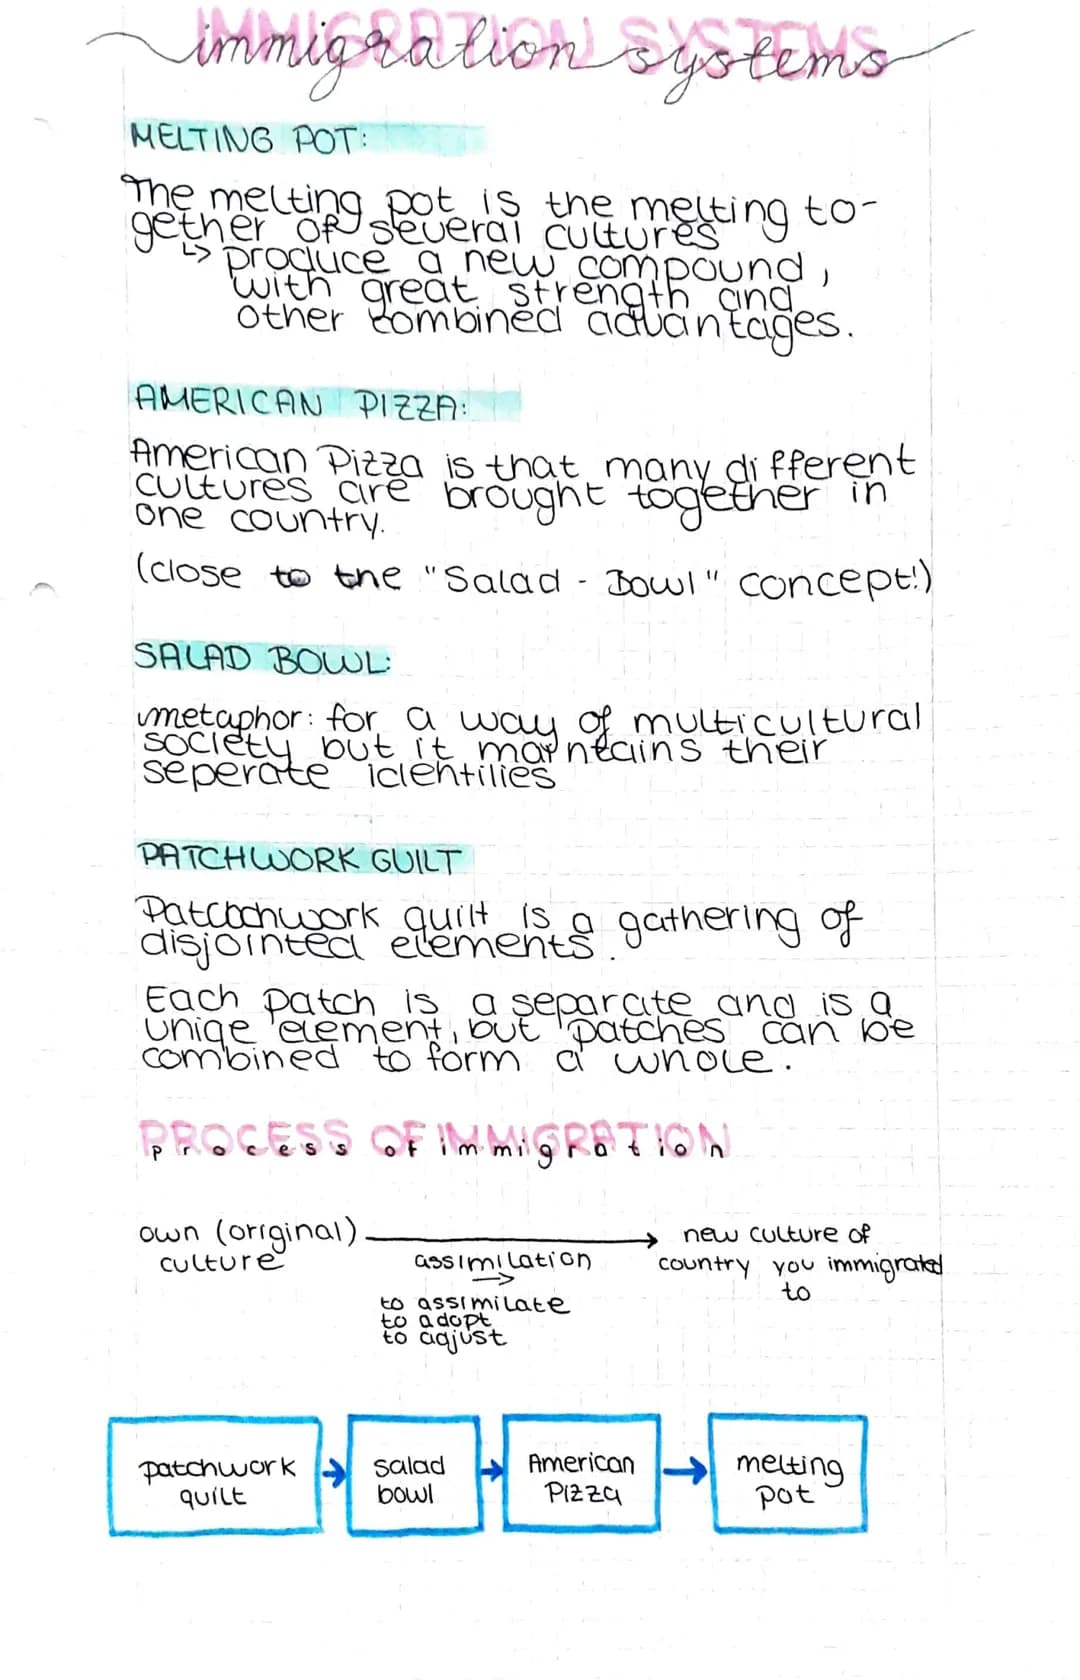 IMMIGRATION SYSTEMS
immigration systems
MELTING POT:
The melting pot is the melting to-
gether of several cultures
↳ produce a new compound,
with great strength and
other combined advantages.
AMERICAN PIZZA:
American Pizza is that many different
cultures are brought together in
one country.
(close to the "Salad - Bowl" concept!)
SALAD BOWL:
metaphor: for a way of multicultural
society but it maintains their
seperate identities
PATCHWORK GUILT
Patchwork quilt is a gathering of
disjointed elements.
Each patch is a separate and is a
uniqe element, but patches can be
combined to form a whole.
PROCESS OF IMMIGRATION
process of immigration
own (original) → new culture of
culture assimilation country you immigrated
→ to
to assimilate
to adopt
to adjust
patchwork → salad → American → melting
quilt bowl Pizza pot